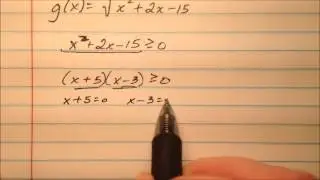 g(x) = √x²+2x-15
x²+2x-15 ≥ 0
(x+5)(x-3) ≥ 0
x+5=0 x-3=